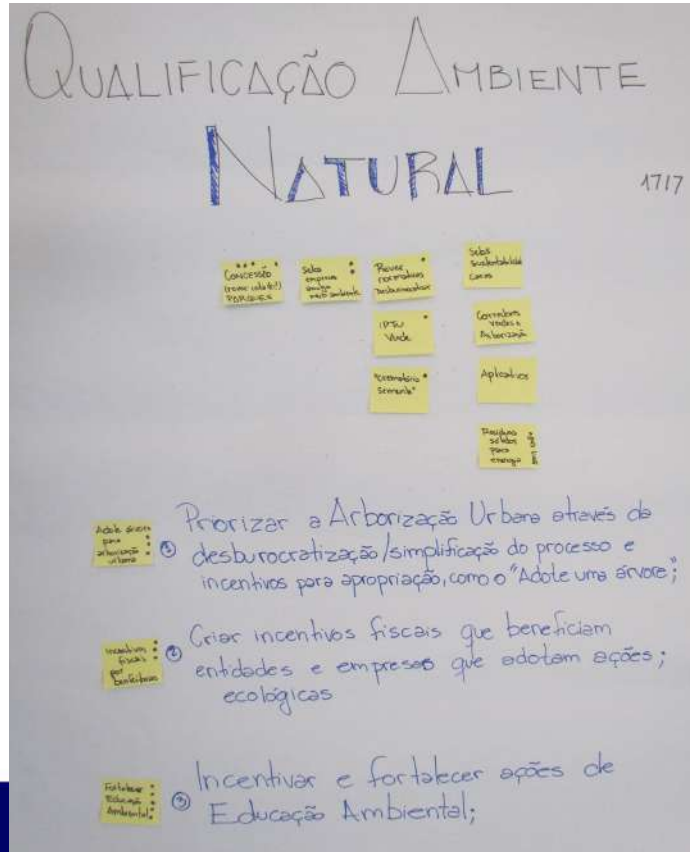 QUALIFICAÇÃO AMBIENTE
NATURAL
17/7
CONCESSÃO
PARQUES
Selos
empresa
meio ambiente
Rever
normativas
desburocratizar
Selos
Sustentabilidade
IPTU
Verde
Corredores
verdes e
Arborização
"Crematório
Semente"
Aplicativos
Resíduos
sólidos
para
energia
Adote árvore
para
arborização
urbana
① Priorizar a Arborização Urbana através da
desburocratização/simplificação do processo e
incentivos para apropriação, como o "Adote uma árvore";
Incentivos
fiscais
por
benfeitorias
② Criar incentivos fiscais que beneficiam
entidades e empresas que adotam ações;
ecológicas
Fortalecer
Educação
Ambiental
③ Incentivar e fortalecer ações de
Educação Ambiental;